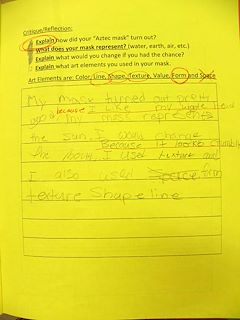 Critique/Reflection:
Explain how did your "Aztec mask" turn out?
What does your mask represent? (water, earth, air, etc.)
Explain what would you change if you had the chance?
Explain what art elements you used in your mask.
Art Elements are: Color, Line, Shape, Texture, Value, Form and Space
My mask turned out pretty
good because I like my
my mask represents
the sun. I would change
the Because it looks
I used texture and
I also used Space, from
texture Shape line